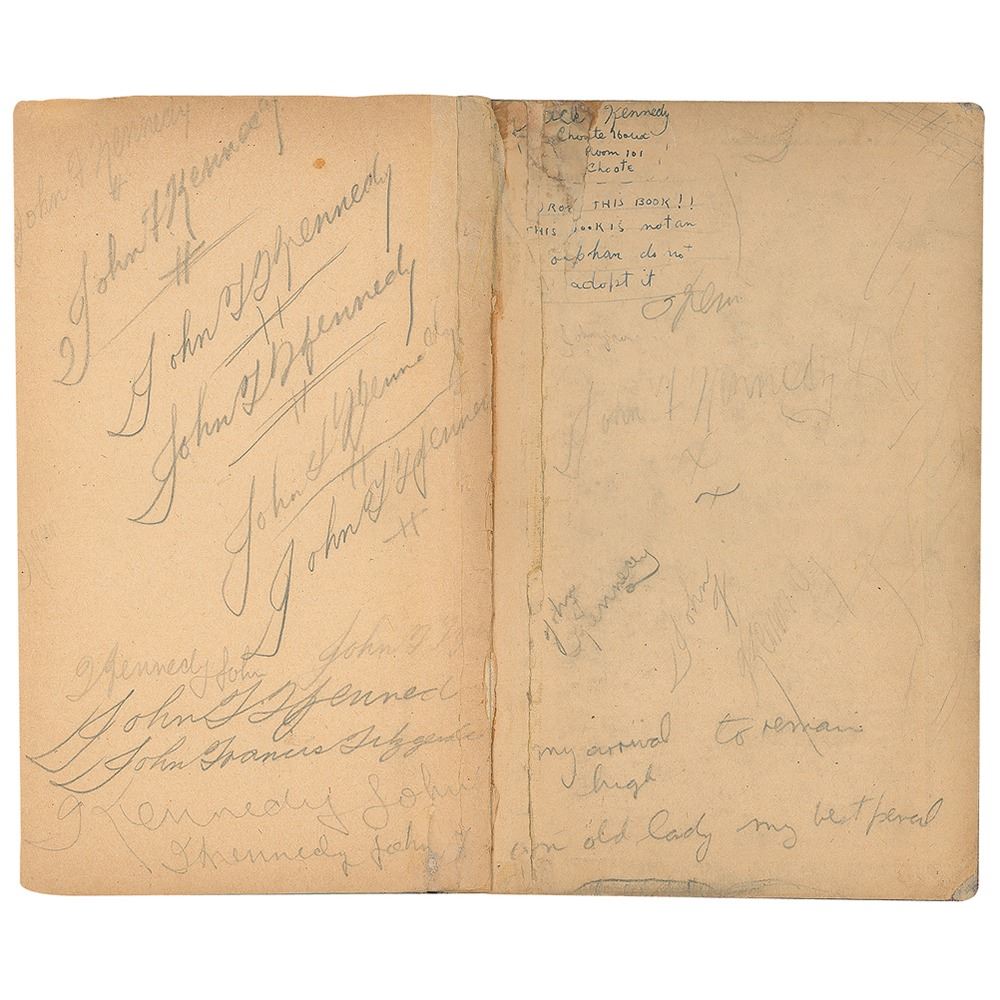 John F Kennedy
John F Kennedy
John F Kennedy
John F Kennedy
John F Kennedy
John F Kennedy
Kennedy John
John F
John F Kenned
John Francis Fitzgerald
Kennedy John
Kennedy John F
Kennedy
Choate House
Room 101
Choate
DROP THIS BOOK!!
THIS BOOK IS not an
orphan do not
adopt it
John F Kennedy
John
Kennedy
John F
Kennedy
my arrival to remain
high
an old lady my best pencil